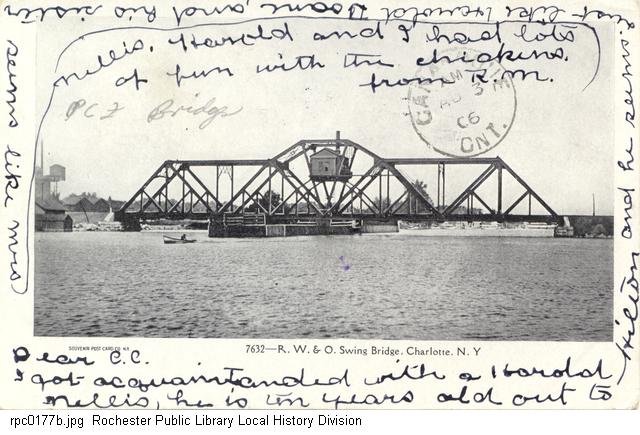 Dear C.C.
I got acquaintanded with a Harold
Mellis, he is ten years old out to
Hilton and he seems
just like Harold Doane, and his sister
seems like mrs
Mellis. Harold and I had lots
of fun with the chickins.
from R.M.
PCZ Bridge
AM
3
06
ONT.
SOUVENIR POST CARD CO. N.Y.
7632—R. W. & O. Swing Bridge, Charlotte, N. Y
rpc0177b.jpg Rochester Public Library Local History Division